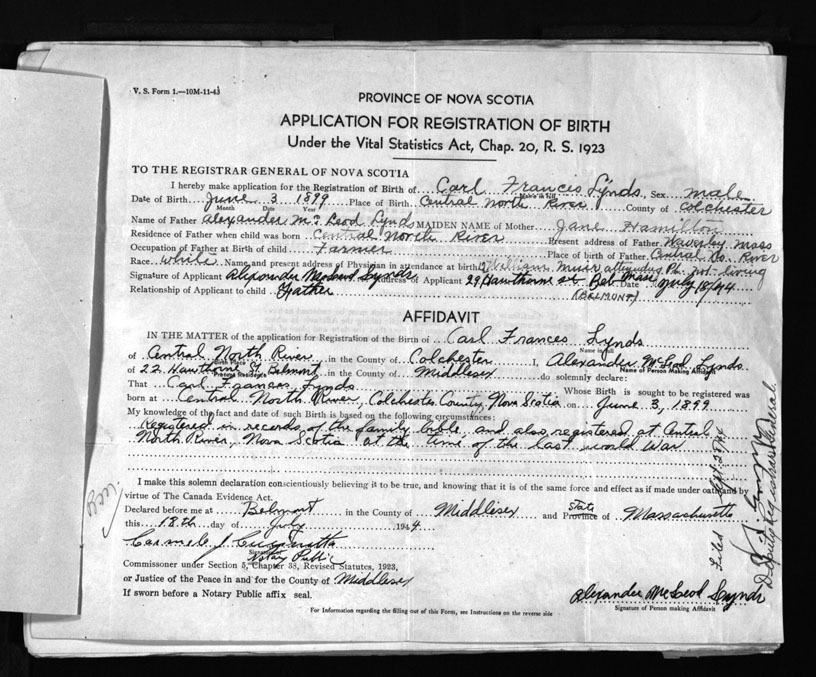 V. S. Form 1.—10M-11-43
PROVINCE OF NOVA SCOTIA
APPLICATION FOR REGISTRATION OF BIRTH
Under the Vital Statistics Act, Chap. 20, R. S. 1923
TO THE REGISTRAR GENERAL OF NOVA SCOTIA
I hereby make application for the Registration of Birth of Carl Frances Lynds, Sex male
Name in full
Date of Birth June 3 1899 Place of Birth Central North River County of Colchester
Month Date Year
Name of Father Alexander McLeod Lynds MAIDEN NAME of Mother Jane Hamilton
Residence of Father when child was born Central North River Present address of Father Waverley Mass
Occupation of Father at Birth of child Farmer Place of Birth of Father Central No. River
Race white Name and present address of Physician in attendance at birth William Muir attending Ph. not living
Signature of Applicant Alexander McLeod Lynds Address of Applicant 22 Hawthorne St Mass Date July 18/44
(BELMONT)
Relationship of Applicant to child Father
AFFIDAVIT
IN THE MATTER of the application for Registration of the Birth of Carl Frances Lynds
Name in full
of Central North River in the County of Colchester I, Alexander McLeod Lynds
Birth Place Name of Person Making Affidavit
of 22 Hawthorne St Belmont in the County of Middlesex do solemnly declare:
Present Residence
That Carl Frances Lynds Whose Birth is sought to be registered was
born at Central North River, Colchester County, Nova Scotia on June 3, 1899
My knowledge of the fact and date of such Birth is based on the following circumstances:
Registered in records of the family bible, and also registered at Central
North River, Nova Scotia at the time of the last world war
I make this solemn declaration conscientiously believing it to be true, and knowing that it is of the same force and effect as if made under oath and by
virtue of The Canada Evidence Act.
Declared before me at Belmont in the County of Middlesex and State Province of Massachusetts
this 18th day of July 1944
Notary Public
Commissioner under Section 5, Chapter 38, Revised Statutes, 1923,
or Justice of the Peace in and for the County of Middlesex
If sworn before a Notary Public affix seal.
Alexander McLeod Lynds
Signature of Person making Affidavit
For Information regarding the filling out of this Form, see Instructions on the reverse side
Filed
Deputy Registrar General